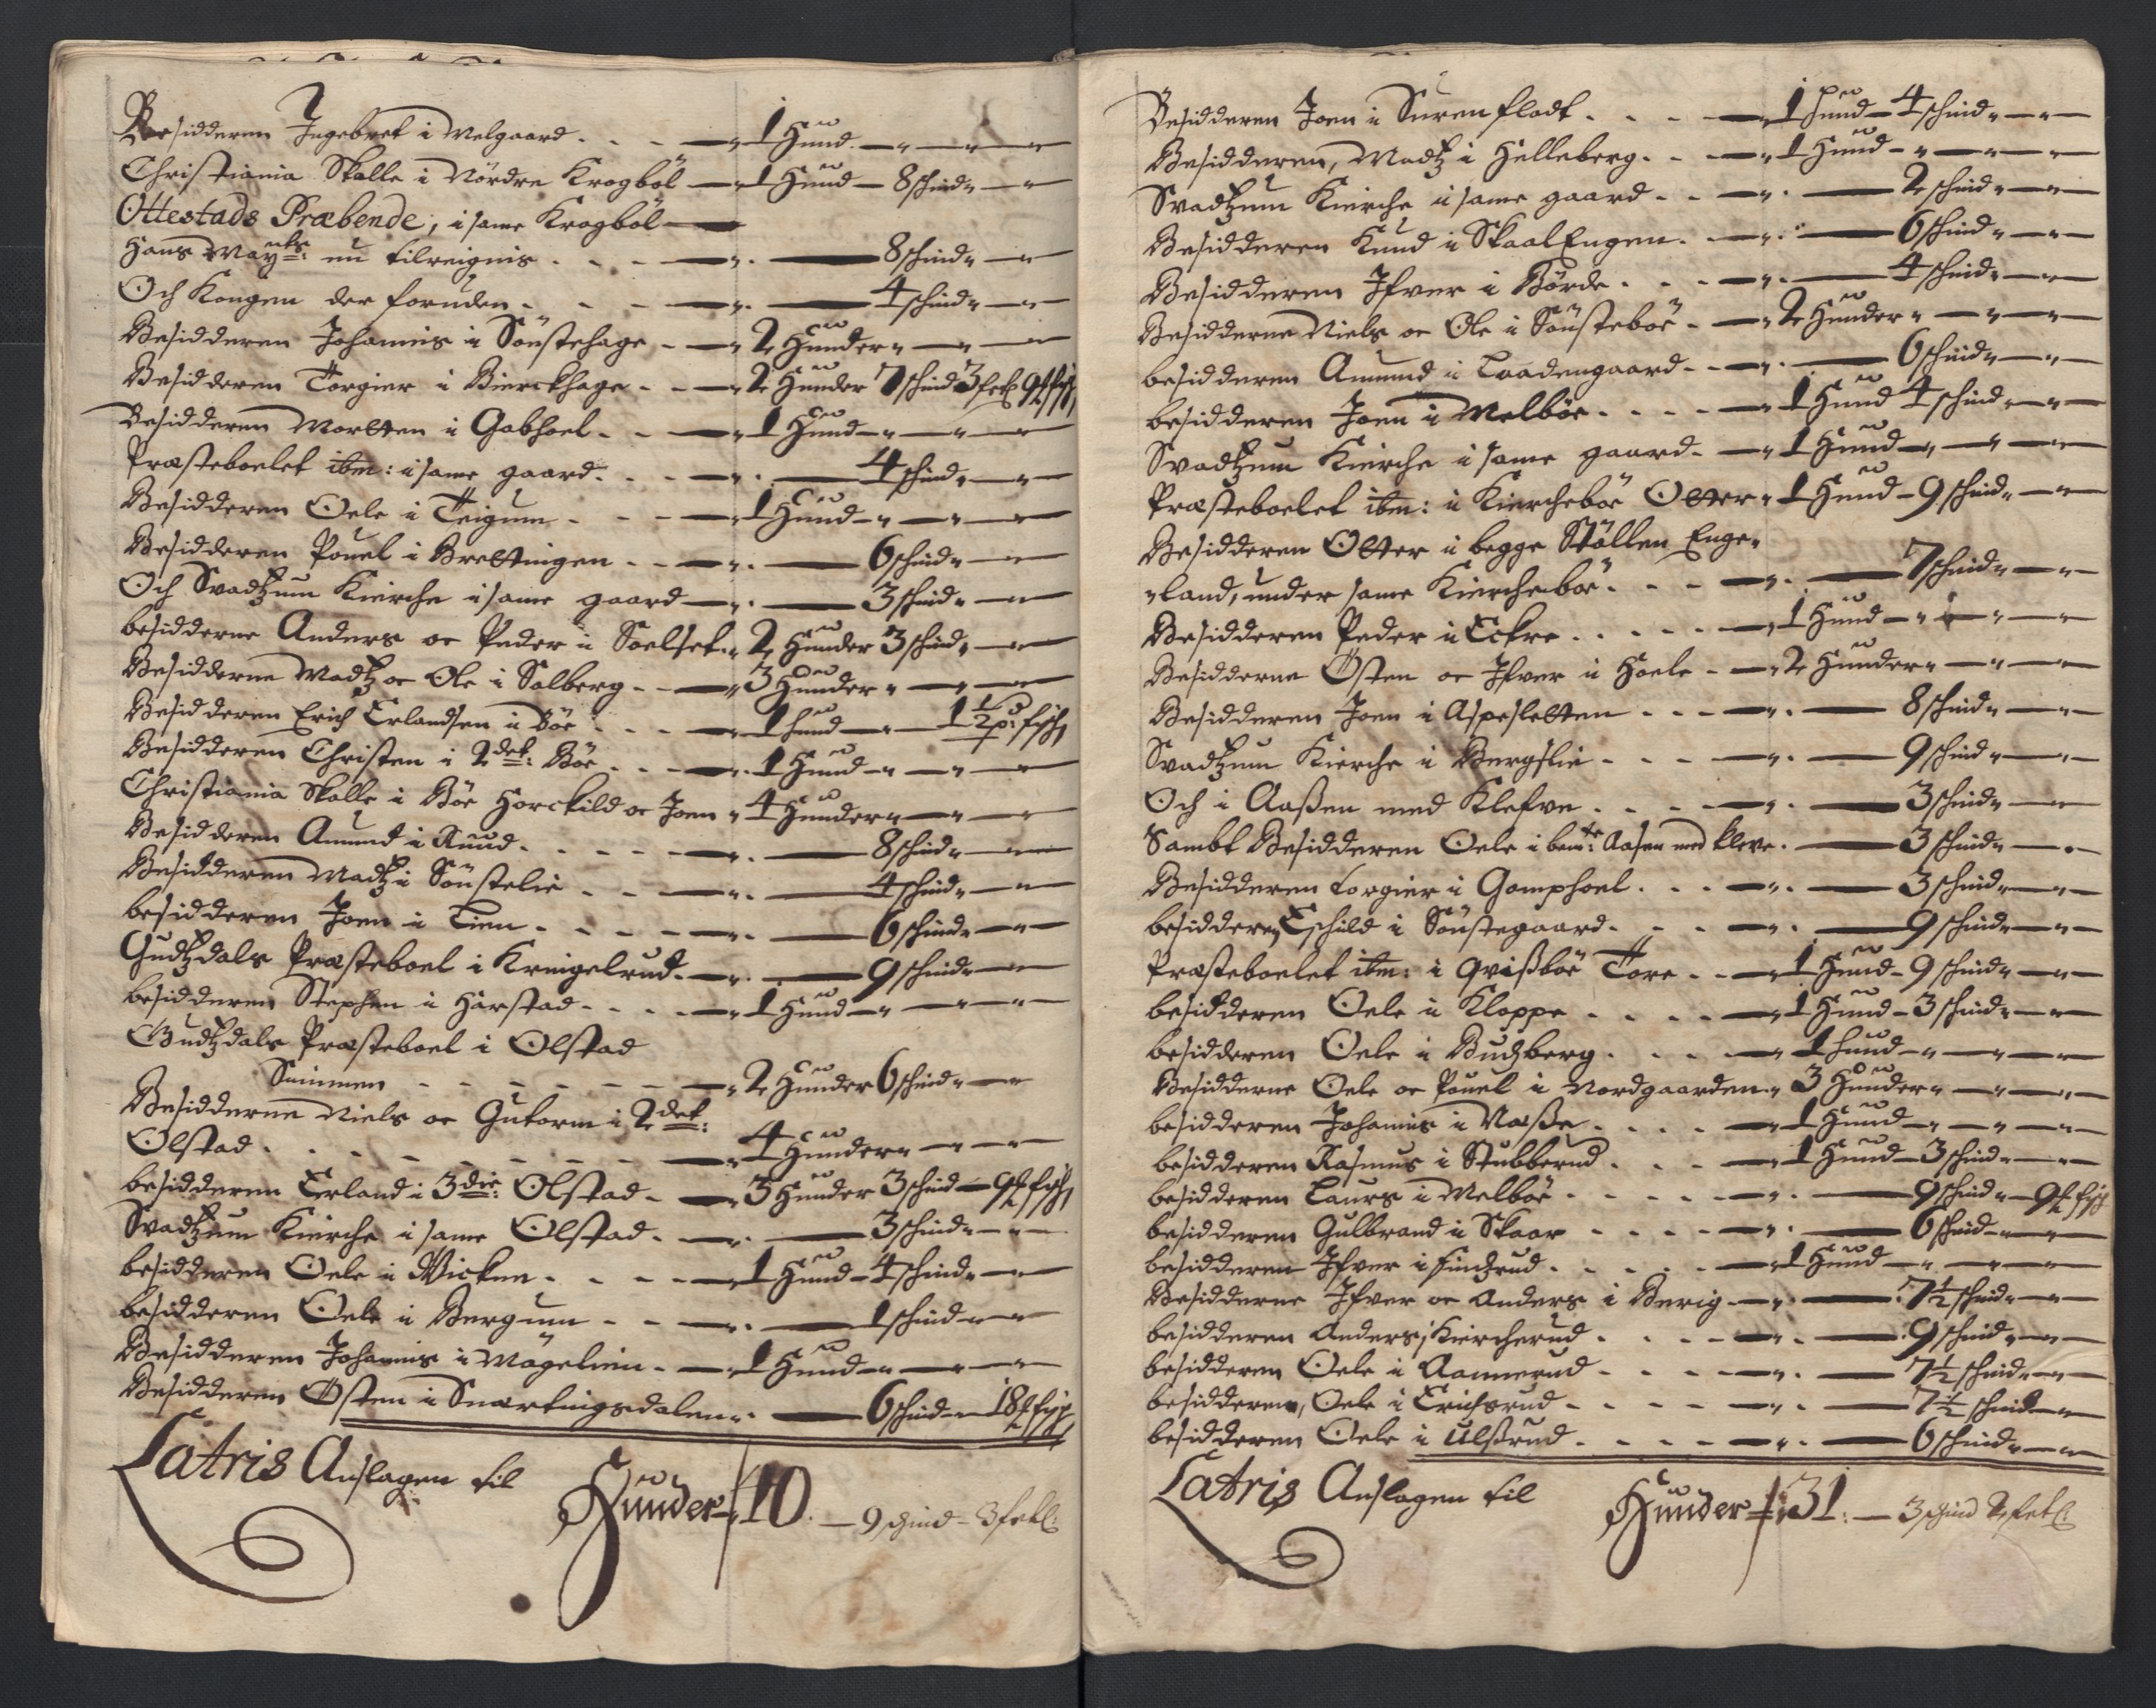 Besidderen Ingebret i Melgaard . . . — " 1 Hund — " — " —
Christiania Skolle i Nördre Krogböl — " 1 Hund — 8 schind " — "
Ottestads Præbende, i same Krogböl —
Hans Mayts: nu tilreignis . . . — " . — 8 schind " — "
Och Kongen der foruden . . . — " . — 4 schind " — "
Besidderen Johannis i Sönstehage . . — " 2 Hunder " — " —
Besidderen Torgier i Bierckhage . . — " 2 Hunder 7 schind 3 fetl 9 ℔ fisch
Besidderen Mortten i Gabhoel . . — " 1 Hund — " — " —
Præsteboelet ibm: i same gaard . . . — " . — 4 schind " — "
Besidderen Oele i Teigum . . . — " 1 Hund — " — " —
Besidderen Pouel i Brettingen . . — " . — 6 schind " — "
Och Svadtzum Kirche i same gaard — " . — 3 schind " — "
besidderne Anders oc Peder i Soelset . " 2 Hunder 3 schind " — "
Besidderne Madtz oc Ole i Solberg . . — " 3 Hunder " — " —
Besidderen Erich Erlandsen i Böe . . . — " 1 hund — " — 1 1/2 p: fisch
Besidderen Christen i 2det: Böe . . — " . 1 Hund — " — " —
Christiania Skolle i Böe Horckild oc Joen " 4 Hunder " — " —
Besidderen Amund i Ruud . . . . — " . — 8 schind " — "
Besidderen Madtz i Sönstelie . . . — " . — 4 schind " — "
besidderen Joen i Lien . . . . — " . — 6 schind " — "
Gudtzdals Præsteboel i Kringelrud — " . — 9 schind " — "
besidderen Stephen i Harstad . . . — " 1 Hund — " — " —
Gudtzdals Præsteboel i Olstad
Simmen . . . . . . — " 2 Hunder 6 schind " — "
Besidderne Niels oc Gutorm i 2det:
Olstad . . . . . . — " 4 Hunder " — " —
besidderen Erland i 3die: Olstad . — " 3 Hunder 3 schind — 9 ℔ fisch
Svadtzum Kirche i same Olstad . — " . — 3 schind " — "
besidderen Oele i Wicken . . . — " 1 Hund — 4 schind " — "
besidderen Oele i Bergum . . — " . — 1 schind " — "
Besidderen Johannis i Mögelien . — " 1 Hund — " — " —
Besidderen Östen i Snærtingsdalen " . — 6 schind — " 18 ℔ fisch
Latris Anslagen til Hunder — 40. — 9 schind — 3 fetl:
Besidderen Joen i Surenflodt . . . — " 1 hund — 4 schind " — "
Besidderen, Madtz i Helleberg . . — " 1 Hund — " — " —
Svadtzum Kierche i same gaard . . — " . — 2 schind " — "
Besidderen Knud i SkaalEngen . — " . — 6 schind " — "
Besidderen Ifver i Börde . . . — " . — 4 schind " — "
Besidderne Niels oc Ole i Sönsteboe . — " 2 Hunder " — " —
besidderen Amund i Laadengaard . . — " . — 6 schind " — "
besidderen Joen i Melböe . . . . — " 1 Hund 4 schind " — "
Svadtzum Kierche i same gaard . — " 1 Hund — " — " —
Præsteboelet ibm: i Kiercheböe Otter " 1 Hund — 9 schind " — "
Besidderen Otter i begge Stöllen Enge "
" land, under same Kiercheböe . . . — " . — 7 schind " — "
Besidderen Peder i Eckre . . . . — " 1 Hund — " — " —
Besidderne Östen oc Ifver i Hoele . — " 2 Hunder " — " —
Besidderen Joen i Aspesletten . . . — " . — 8 schind " — "
Svadtzum Kierche i Bergslie . . . — " . — 9 schind " — "
Och i Aaßen med Klefve . . . — " . — 3 schind " — "
Sambt Besidderen Oele i bemte: Aasen med kleve . — 3 schind " — .
Besidderen torgier i Gomphoel . . . — " . — 3 schind " — "
besidderen Eschild i Sönstegaard . . . — " . — 9 schind " — "
Præsteboelet ibm: i Qvißböe Tore . . — " 1 Hund — 9 schind " — "
besidderen Oele i Kloppe . . . . — " 1 Hund — 3 schind " — "
besidderen Oele i Budzberg . . . — " 1 hund — " — " —
Besidderne Oele oc Pouel i Nordgaarden " 3 Hunder " — " —
besidderen Johannis i Næße . . . . — " 1 Hund — " — " —
besidderen Rasmus i Stubberud . . . — " 1 Hund — 3 schind " — "
besidderen Laurs i Melböe . . . . . — " . — 9 schind " — 9 ℔ fisch
besidderen Gulbrand i Skaar . . . . — " . — 6 schind " — "
besidderen Ifver i Findzrud . . . . — " 1 Hund — " — " —
Besidderne Ifver oc Anders i Berig — " . — 7 1/2 schind " — "
besidderen Anders i Kiercherud . . . . — " . — 9 schind " — "
besidderen Oele i Aannerud . . . . — " . — 7 1/2 schind " — "
besidderen, Oele i Erichsrud . . . . — " . — 7 1/2 schind " — "
besidderen Oele i Ulßrud . . . . — " . — 6 schind " — "
Latris Anslagen til Hunder — 31: — 3 schind 2 fetl: